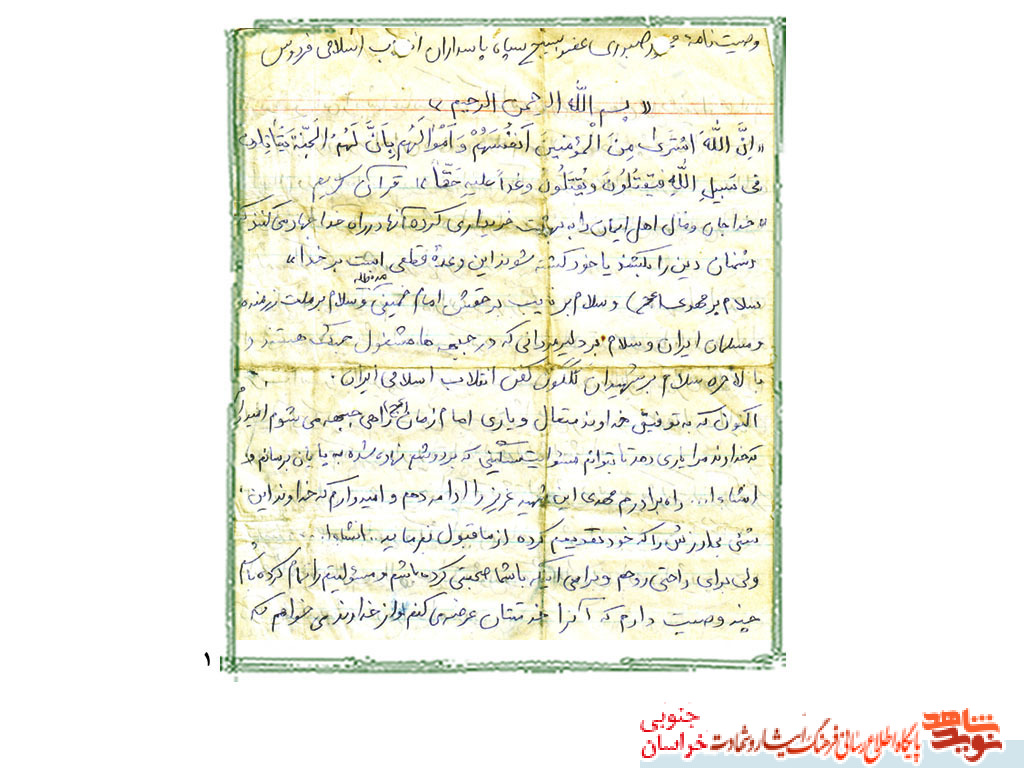 وصیت نامه صبوری عضو بسیج سپاه پاسداران انقلاب اسلامی فردوس
« بسم الله الرحمن الرحیم »
« اِنَّ اللّهَ اشْتَریٰ مِنَ الْمؤمنینَ اَنفُسَهُمْ وَ اَمْوٰالَهُم بِاَنَّ لَهُمُ الْجَنَّة یُقاتِلونَ
فی سَبیلِ اللّهِ فَیَقتُلُونَ وَ یُقتَلُونَ وعْداً علیهِ حَقّاً » قرآن کریم
« خدا جان و مال اهل ایمان را به بهشت خریداری کرده آنها در راه خدا جهاد می کنند که
دشمنان دین را بکشند یا خود کشته شوند این وعدهٔ قطعی است بر خدا »
سلام بر مهدی (عج) و سلام بر نایب بر حقش امام خمینی مدظله و سلام بر ملت رزمنده
و مسلمان ایران و سلام بر دلیر مردانی که در جبهه ها مشغول جنگ هستند و
بالاخره سلام بر شهیدان گلگون کفن انقلاب اسلامی ایران .
اکنون که به توفیق خداوند متعال و یاری امام زمان (عج) راهی جبهه می شوم امیدوارم
که خداوند مرا یاری دهد تا بتوانم مسئولیت سنگینی که بر دوشم نهاده شده به پایان برسانم و
انشاءا... راه برادرم مهدی این شهید عزیز را ادامه دهم و امیدوارم که خداوند این
شئی با ارزش را که خود تقدیم کرده از ما قبول بفرماید . انشاءا..
ولی برای راحتی روحم و برای اینکه با شما صحبتی کرده باشم و مسئولیتم را تمام کرده باشم
چند وصیت دارم که آنرا خدمتتان عرضه می کنم و از خداوند می خواهم که
۱
نوید شاهد
پایگاه اطلاع رسانی فرهنگ ایثار و شهادت
خراسان جنوبی